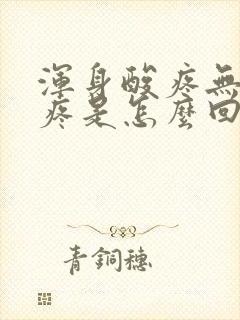 渾身酸疼無
疼是怎麼回
青銅穗